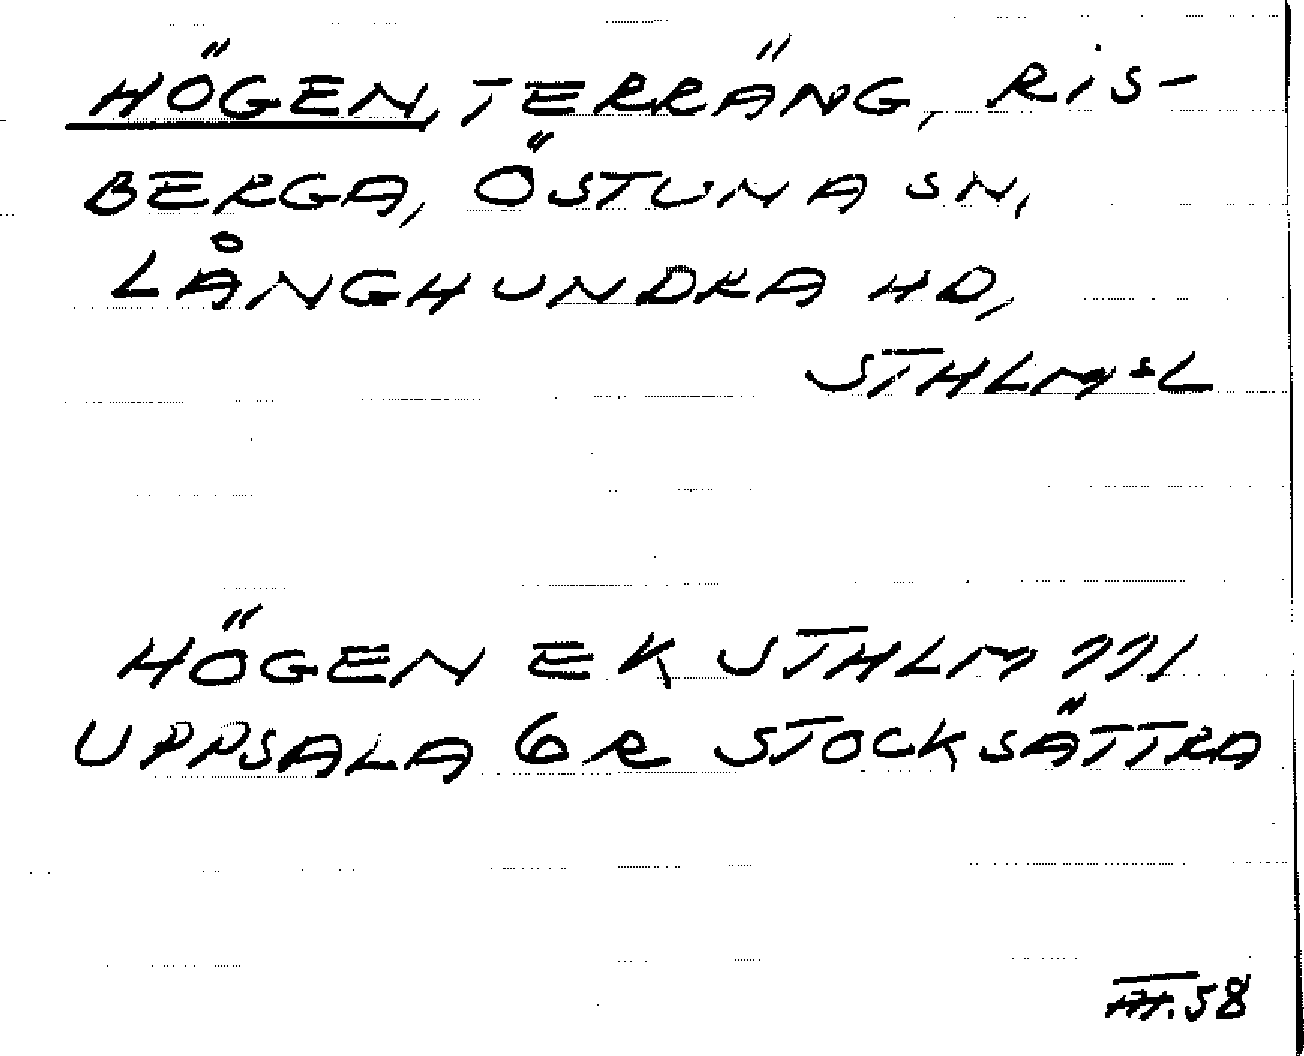 HÖGEN, TERRÄNG, RIS-
BERGA, ÖSTUNA SN,
LÅNGHUNDRA HD,
STHLMSL
HÖGEN EK STHLM 771
UPPSALA 6R STOCKSÄTTRA
58